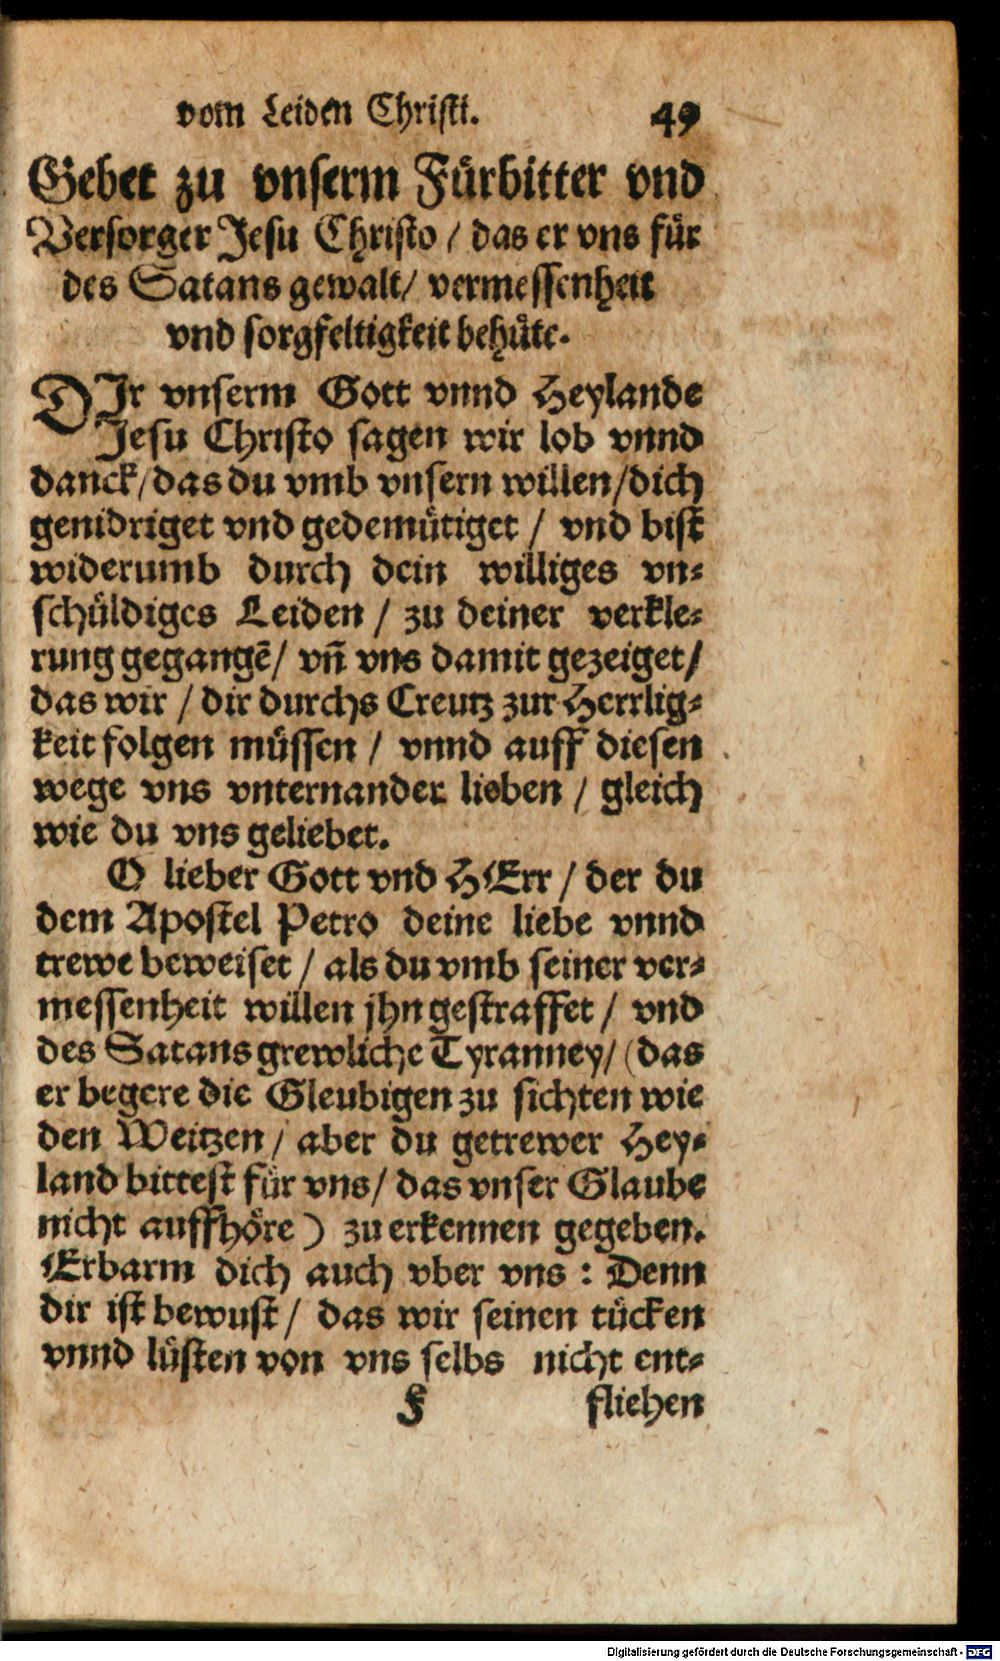 vom Leiden Christi. 49
Gebet zu vnserm Fürbitter vnd
Versorger Jesu Christo / das er vns für
des Satans gewalt / vermessenheit
vnd sorgfeltigkeit behüte.
DIr vnserm Gott vnnd Heylande
Jesu Christo sagen wir lob vnnd
danck / das du vmb vnsern willen / dich
genidriget vnd gedemütiget / vnd bist
widerumb durch dein williges vn-
schüldiges Leiden / zu deiner verkle-
rung gegangē / vñ vns damit gezeiget /
das wir / dir durchs Creutz zur Herrlig-
keit folgen müssen / vnnd auff diesen
wege vns vnternander lieben / gleich
wie du vns geliebet.
O lieber Gott vnd HErr / der du
dem Apostel Petro deine liebe vnnd
trewe beweiset / als du vmb seiner ver-
messenheit willen jhn gestraffet / vnd
des Satans grewliche Tyranney / (das
er begere die Gleubigen zu sichten wie
den Weitzen / aber du getrewer Hey-
land bittest für vns / das vnser Glaube
nicht auffhöre) zu erkennen gegeben.
Erbarm dich auch vber vns : Denn
dir ist bewust / das wir seinen tücken
vnnd lüsten von vns selbs nicht ent-
fliehen
Digitalisierung gefördert durch die Deutsche Forschungsgemeinschaft - DFG